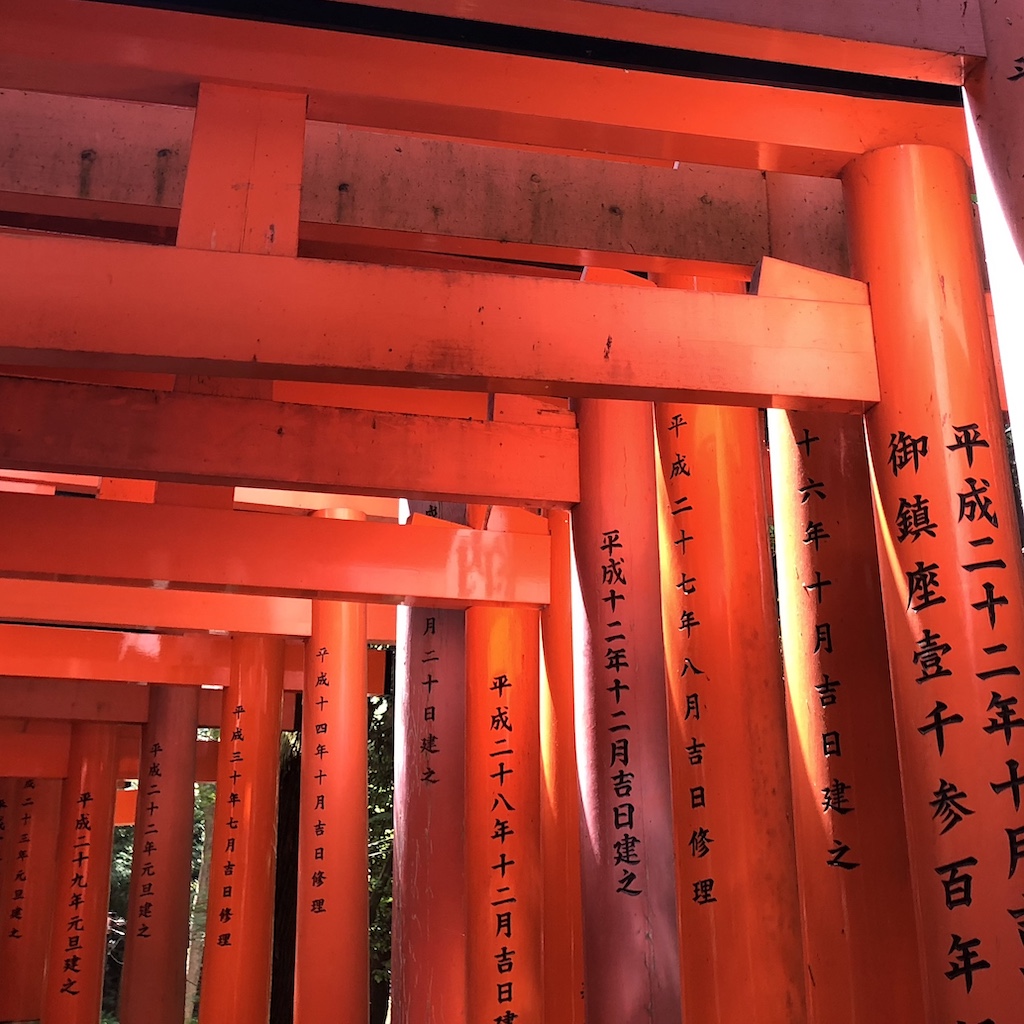 平成二十二年十月
御鎮座壹千参百年
十六年十月吉日建之
平成二十七年八月吉日修理
平成十二年十二月吉日建之
平成二十八年十二月吉日建
月二十日建之
平成十四年十月吉日修理
平成三十年七月吉日修理
平成二十二年元旦建之
平成二十九年元旦建之
成二十三年元旦建之